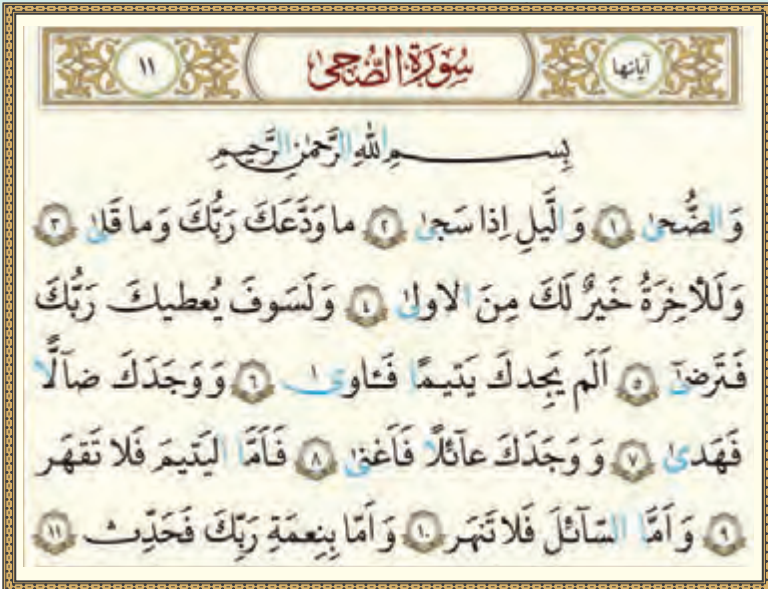 آیاتها سُورَةُ الضُّحىٰ ١١
بِسمِ اللهِ الرَّحمٰنِ الرَّحيمِ
وَ الضُّحىٰ ١ وَ الَّيلِ اِذا سَجىٰ ٢ ما وَدَّعَكَ رَبُّكَ وَ ما قَلىٰ ٣
وَ لَلاٰخِرَةُ خَيرٌ لَكَ مِنَ الاولىٰ ٤ وَ لَسَوفَ يُعطيكَ رَبُّكَ
فَتَرضىٰٓ ٥ اَلَم يَجِدكَ يَتيمًا فَـٔاوىٰ ٦ وَ وَجَدَكَ ضآلًّا
فَهَدىٰ ٧ وَ وَجَدَكَ عآئِلًا فَاَغنىٰ ٨ فَاَمَّا اليَتيمَ فَلا تَقهَر
٩ وَ اَمَّا السّآئِلَ فَلا تَنهَر ١٠ وَ اَمّا بِنِعمَةِ رَبِّكَ فَحَدِّث ١١